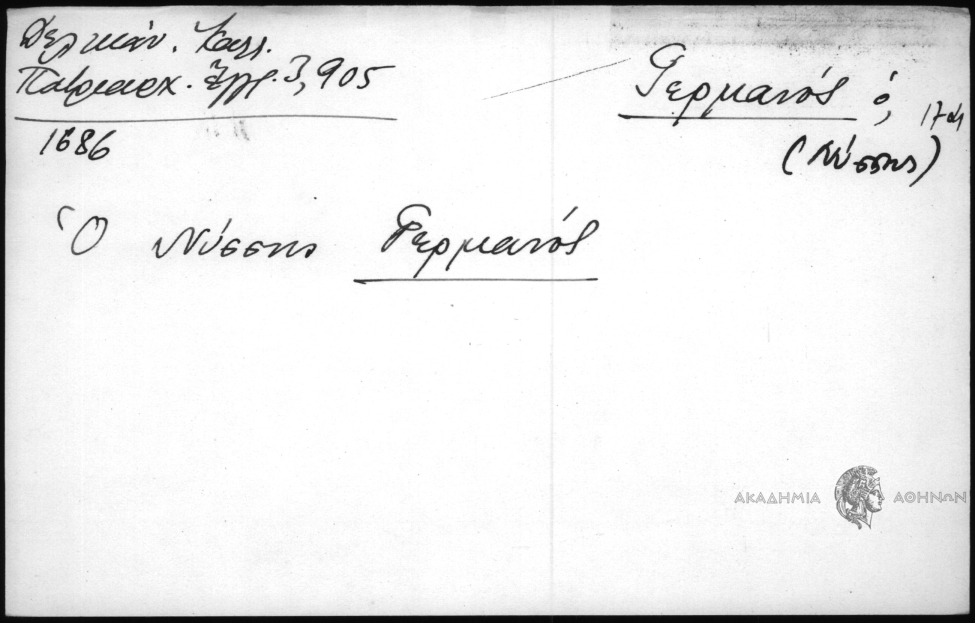 Δελικάν. Καλλ.
Πατριαρχ. Ἔγγρ. 3, 905
1686
Γερμανός, ὁ, 17 αἰ
(Νύσσης)
Ὁ Νύσσης Γερμανός
ΑΚΑΔΗΜΙΑ ΑΘΗΝΩΝ